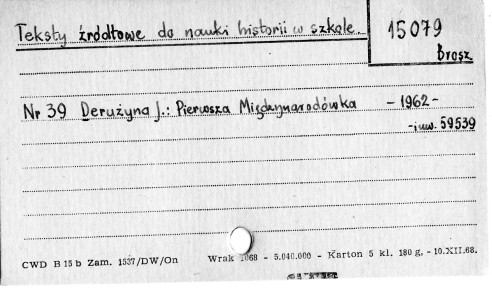 Teksty źródłowe do nauki historii w szkole.
15079
Brosz
Nr 39 Derużyna J.: Pierwsza Międzynarodówka - 1962 -
- inw. 59539
CWD B 15 b Zam. 1537/DW/On Wrak 1068 - 5.040.000 - Karton 5 kl. 180 g, - 10.XII.68.